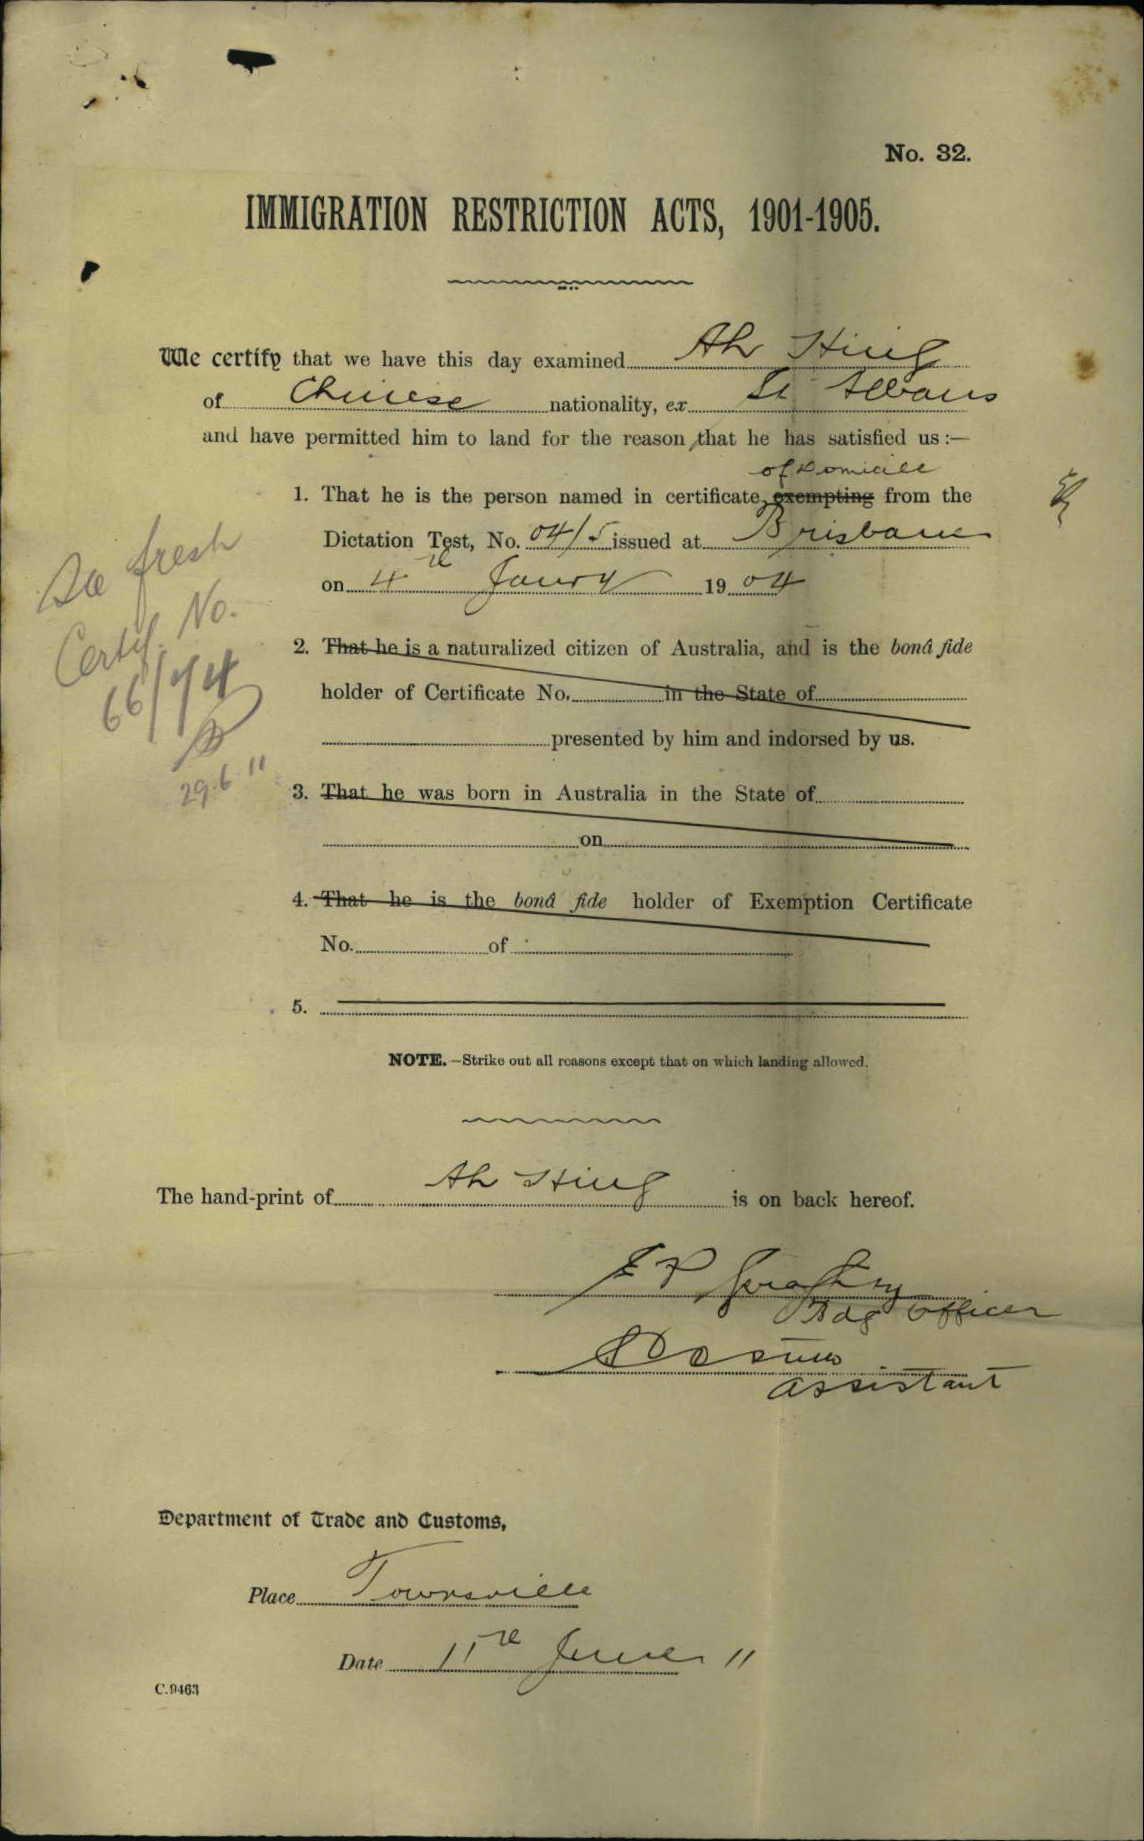 No. 32.
IMMIGRATION RESTRICTION ACTS, 1901-1905.
We certify that we have this day examined Ah Hing
of Chinese nationality, ex St Albans
and have permitted him to land for the reason that he has satisfied us :—
of Domicile
1. That he is the person named in certificate, exempting from the
Dictation Test, No. 04/5 issued at Brisbane
on 4th Janry 1904
See fresh
Certif. No.
29.6.11
2. That he is a naturalized citizen of Australia, and is the bonâ fide
holder of Certificate No. in the State of
presented by him and indorsed by us.
3. That he was born in Australia in the State of
on
4. That he is the bonâ fide holder of Exemption Certificate
No. of
5.
NOTE.—Strike out all reasons except that on which landing allowed.
The hand-print of Ah Hing is on back hereof.
Bdg Officer
Assistant
Department of Trade and Customs,
Place Townsville
Date 11th June 11
C.9463